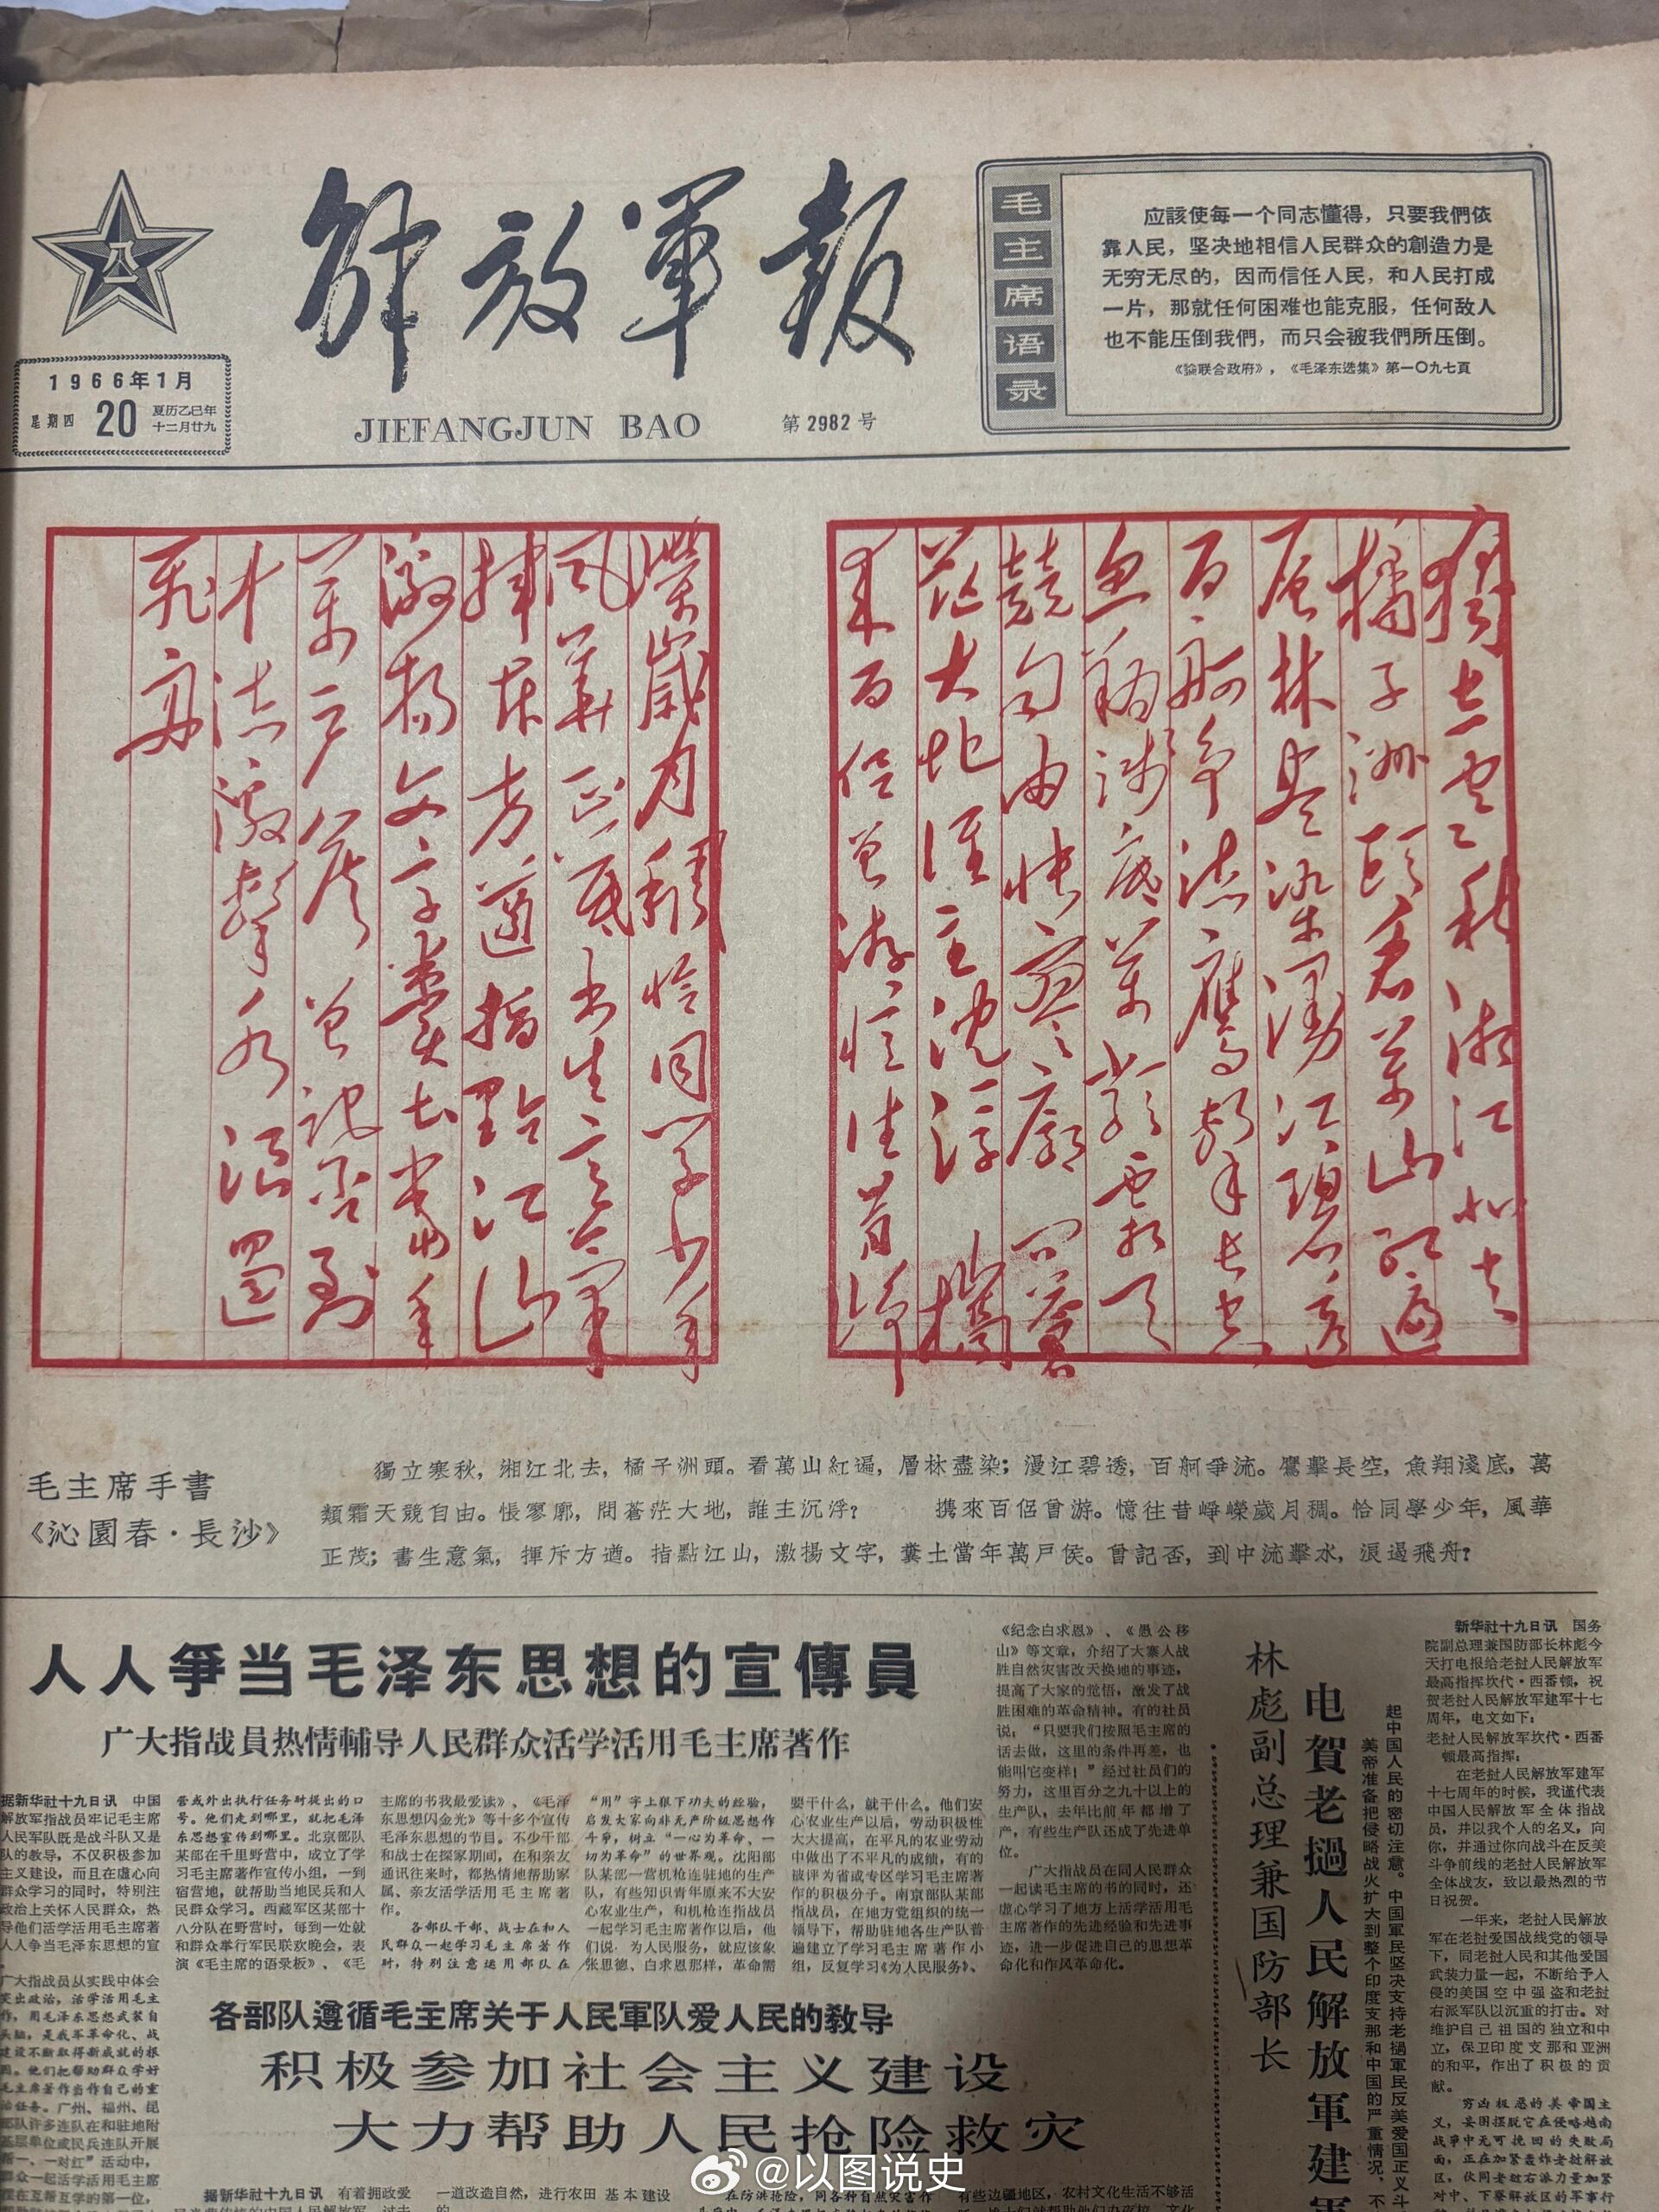 解放軍報
JIEFANGJUN BAO
第2982号
1966年1月
星期四
20
夏历乙巳年
十二月廿九
毛主席语录
应該使每一个同志懂得，只要我們依
靠人民，坚决地相信人民群众的創造力是
无穷无尽的，因而信任人民，和人民打成
一片，那就任何困难也能克服，任何敌人
也不能压倒我們，而只会被我們所压倒。
《論联合政府》，《毛泽东选集》第一〇九七頁
毛主席手書
《沁園春·長沙》
獨立寒秋，湘江北去，橘子洲頭。看萬山紅遍，層林盡染；漫江碧透，百舸爭流。鷹擊長空，魚翔淺底，萬
類霜天競自由。悵寥廓，問蒼茫大地，誰主沉浮？　携來百侶曾游。憶往昔崢嶸歲月稠。恰同學少年，風華
正茂；書生意氣，揮斥方遒。指點江山，激揚文字，糞土當年萬戸侯。曾記否，到中流擊水，浪遏飛舟？
人人爭当毛泽东思想的宣傳員
广大指战員热情輔导人民群众活学活用毛主席著作
据新华社十九日讯　中国
解放军指战员牢记毛主席
人民军队既是战斗队又是
队的教导，不仅积极参加
主义建设，而且在虚心向
群众学习的同时，特别注
政治上关怀人民群众，热
导他们活学活用毛主席著
人人争当毛泽东思想的宣
广大指战员从实践中体会
突出政治，活学活用毛主
作，用毛泽东思想武装自
头脑，是我军革命化、战
建设不断取得新成就的根
因。他们把帮助群众学好
毛主席著作当作自己的重
治任务。广州、福州、昆
部队许多连队在和驻地附
基层单位或民兵连队开展
帮一、一对红”活动中，
群众一起活学活用毛主席
摆在互帮互学的第一位，
营或外出执行任务时提出的口
号。他们走到哪里，就把毛泽
东思想宣传到哪里。北京部队
某部在千里野营中，成立了学
习毛主席著作宣传小组，一到
宿营地，就帮助当地民兵和人
民群众学习。西藏军区某部十
八分队在野营时，每到一处就
和群众举行军民联欢晚会，表
演《毛主席的语录板》、《毛
主席的书我最爱读》、《毛泽
东思想闪金光》等十多个宣传
毛泽东思想的节目。不少干部
和战士在探家期间，在和亲友
通讯往来时，都热情地帮助家
属、亲友活学活用毛主席著
作。
各部队干部、战士在和人
民群众一起学习毛主席著作
时，特别注意运用部队在
“用”字上狠下功夫的经验，
启发大家向非无产阶级思想作
斗争，树立“一心为革命、一
切为革命”的世界观。沈阳部
队某部一营机枪连驻地的生产
队，有些知识青年原来不大安
心农业生产，和机枪连指战员
一起学习毛主席著作以后，他
们说，为人民服务，就应该象
张思德、白求恩那样，革命需
要干什么，就干什么。他们安
心农业生产以后，劳动积极性
大大提高，在平凡的农业劳动
中做出了不平凡的成绩，有的
被评为省或专区学习毛主席著
作的积极分子。南京部队某部
指战员，在地方党组织的统一
领导下，帮助驻地各生产队普
遍建立了学习毛主席著作小
组，反复学习《为人民服务》、
《纪念白求恩》、《愚公移
山》等文章，介绍了大寨人战
胜自然灾害改天换地的事迹，
提高了大家的觉悟，激发了战
胜困难的革命精神。有的社员
说：“只要我们按照毛主席的
话去做，这里的条件再差，也
能叫它变样！”经过社员们的
努力，这里百分之九十以上的
生产队，去年比前年都增了
产，有些生产队还成了先进单
位。
广大指战员在同人民群众
一起读毛主席的书的同时，还
虚心学习了地方上活学活用毛
主席著作的先进经验和先进事
迹，进一步促进自己的思想革
命化和作风革命化。
各部队遵循毛主席关于人民軍队爱人民的教导
积极参加社会主义建设
大力帮助人民抢险救灾
据新华社十九日讯　有着拥政爱
一道改造自然，进行农田基本建设
林彪副总理兼国防部长
电賀老撾人民解放軍建軍
起中国人民的密切注意。中国軍民坚决支持老撾軍民反美爱国正义斗
美帝准备把侵略战火扩大到整个印度支那和中国的严重情况，不
新华社十九日讯　国务
院副总理兼国防部长林彪今
天打电报给老挝人民解放军
最高指挥坎代·西番顿，祝
贺老挝人民解放军建军十七
周年，电文如下：
老挝人民解放军坎代·西番
顿最高指挥：
在老挝人民解放军建军
十七周年的时候，我谨代表
中国人民解放军全体指战
员，并以我个人的名义，向
你，并通过你向战斗在反美
斗争前线的老挝人民解放军
全体战友，致以最热烈的节
日祝贺。
一年来，老挝人民解放
军在老挝爱国战线党的领导
下，同老挝人民和其他爱国
武装力量一起，不断给予入
侵的美国空中强盗和老挝
右派军队以沉重的打击。对
维护自己祖国的独立和中
立，保卫印度支那和亚洲
的和平，作出了积极的贡
献。
穷凶极恶的美帝国主
义，妄图摆脱它在侵略越南
战争中无可挽回的失败局
面，正在加紧轰炸老挝解放
区，伙同老挝右派力量加紧
对中、下寮解放区的军事行
@以图说史